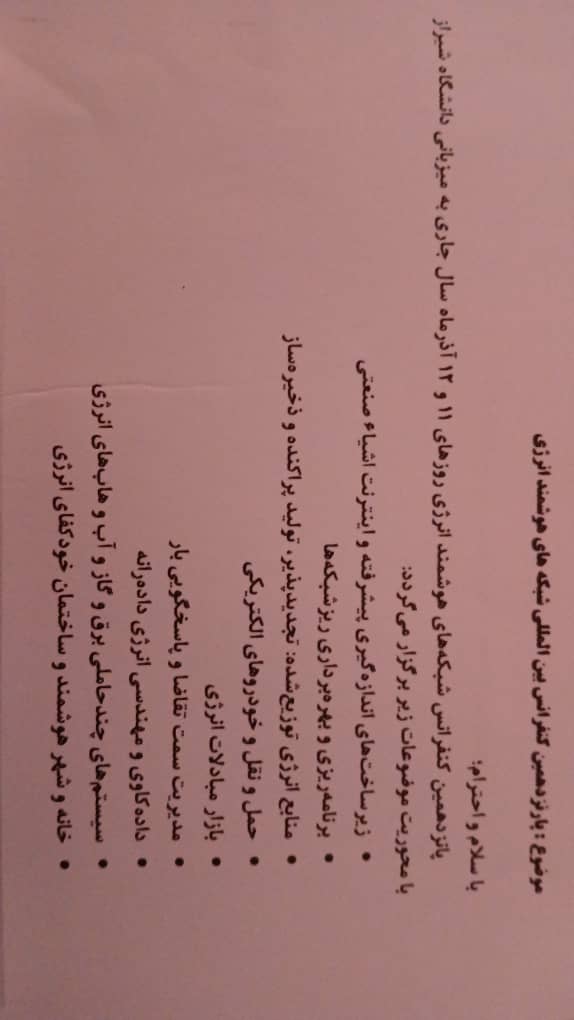 موضوع : پانزدهمین کنفرانس بین المللی شبکه های هوشمند انرژی
با سلام و احترام؛
پانزدهمین کنفرانس شبکه‌های هوشمند انرژی روزهای ۱۱ و ۱۲ آذرماه سال جاری به میزبانی دانشگاه شیراز
با محوریت موضوعات زیر برگزار می‌گردد:
• زیرساخت‌های اندازه‌گیری پیشرفته و اینترنت اشیاء صنعتی
• برنامه‌ریزی و بهره‌برداری ریزشبکه‌ها
• منابع انرژی توزیع‌شده: تجدیدپذیر، تولید پراکنده و ذخیره‌ساز
• حمل و نقل و خودروهای الکتریکی
• بازار مبادلات انرژی
• مدیریت سمت تقاضا و پاسخگویی بار
• داده‌کاوی و مهندسی انرژی داده‌رانه
• سیستم‌های چندحاملی برق و گاز و آب و هاب‌های انرژی
• خانه و شهر هوشمند و ساختمان خودکفای انرژی